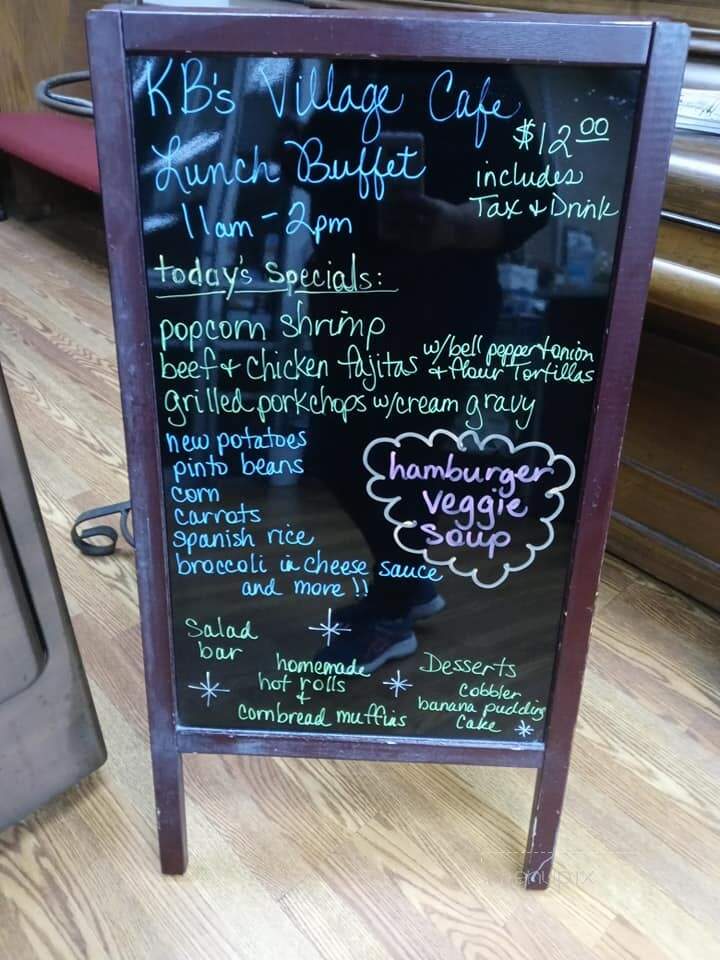 KB's Village Cafe
$12.00
Lunch Buffet
includes
Tax & Drink
11am - 2pm
today's Specials:
popcorn shrimp
beef & chicken fajitas w/bell pepper & onion
& flour Tortillas
grilled porkchops w/cream gravy
new potatoes
pinto beans
corn
carrots
spanish rice
broccoli in cheese sauce
and more !!
hamburger
veggie
soup
Salad
bar
homemade
hot rolls
&
cornbread muffins
Desserts
cobbler
banana pudding
cake